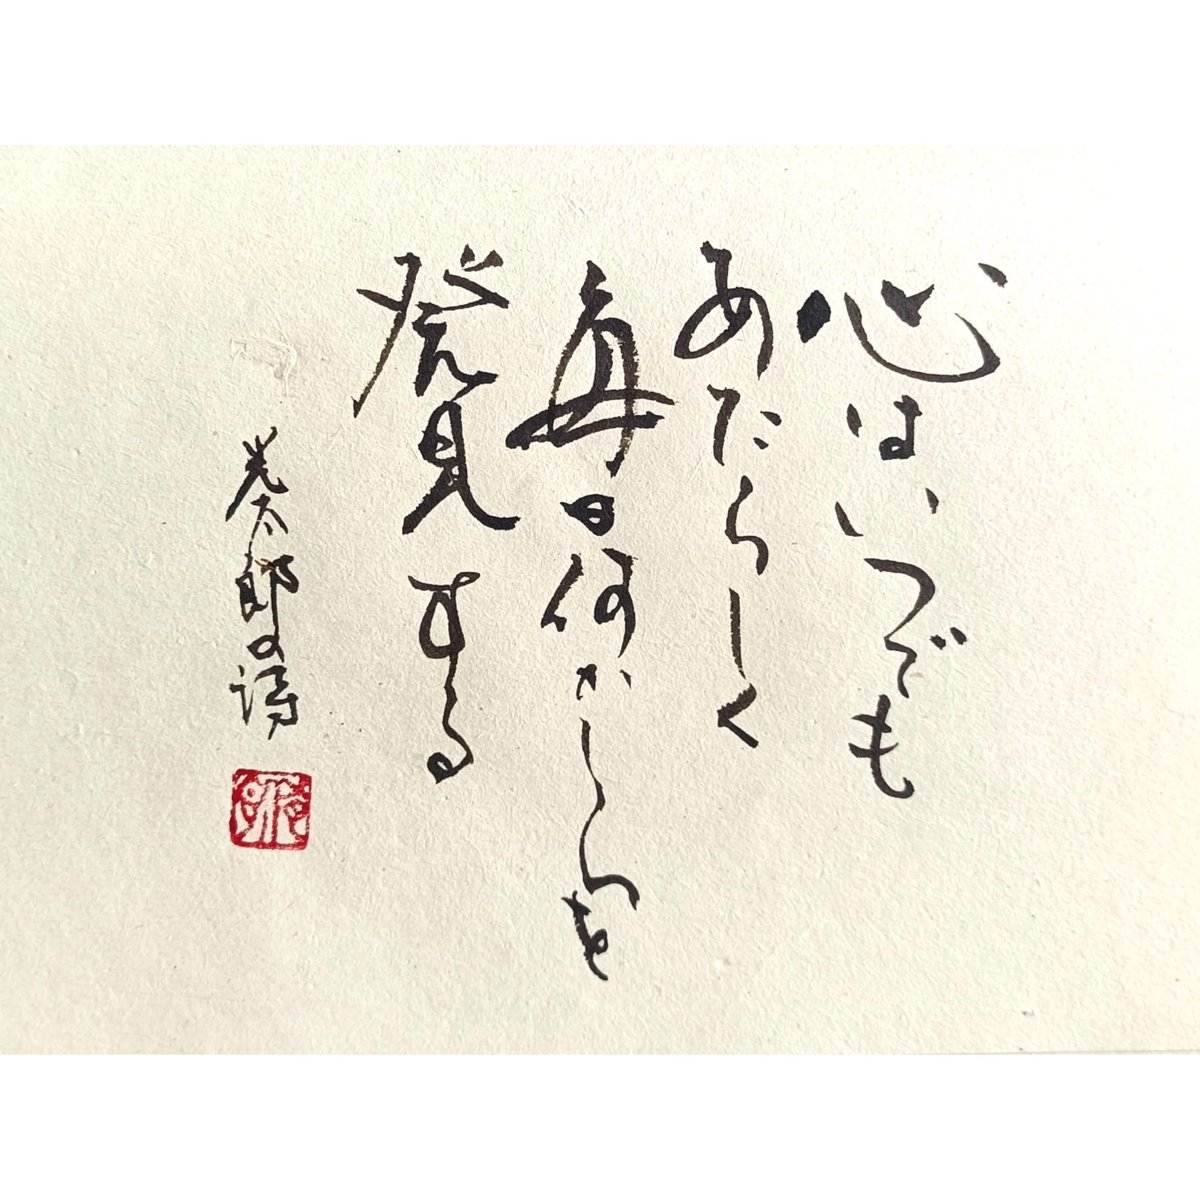 心はいつでも
あたらしく
毎日何かしらを
発見する
光太郎の詩